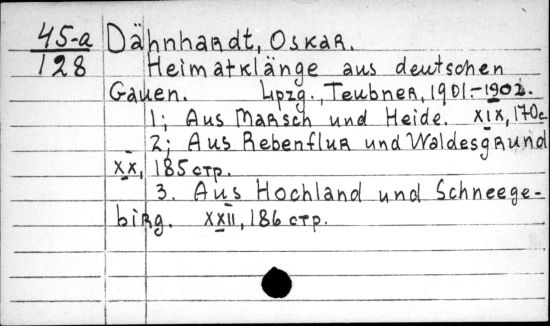 45-a Dähnhardt, Oskar.
128 Heimatklänge aus deutschen
Gauen. Lpzg., Teubner, 1901.-1902.
1; Aus Marsch und Heide. XIX, 170c
2; Aus Rebenflur und Waldesgrund
XX, 185 стр.
3. Aus Hochland und Schneege-
birg. XXII, 186 стр.